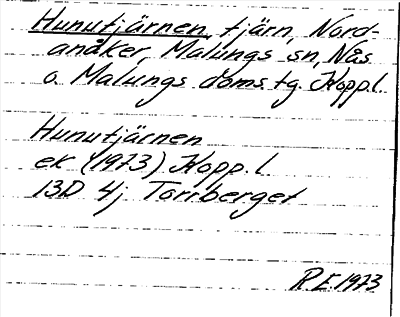 Hunutjärnen, tjärn, Nord-
anåker, Malungs sn, Nås
o. Malungs doms.tg. Kopp.l.
Hunutjärnen
ek (1973) Kopp. l.
13D 4j Torrberget
R E. 1973